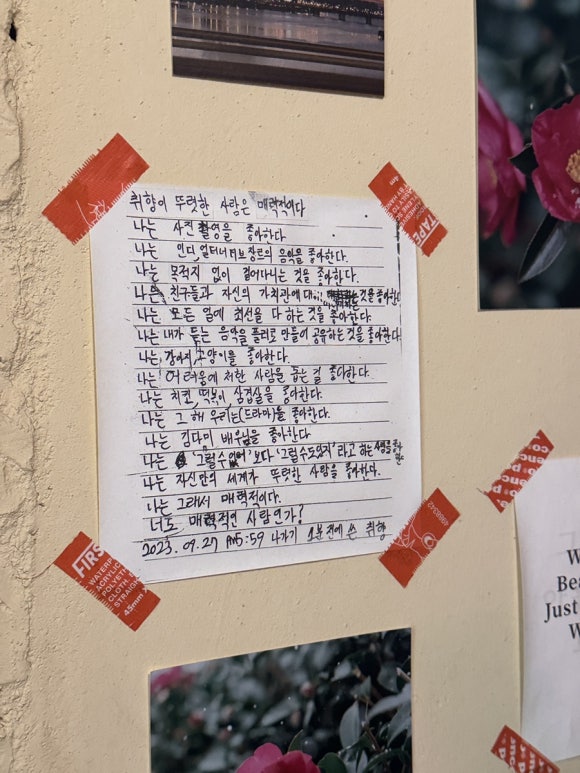 취향이 뚜렷한 사람은 매력적이다
나는 사진 촬영을 좋아한다
나는 인디, 얼터너티브 장르의 음악을 좋아한다.
나는 목적지 없이 걸어다니는 것을 좋아한다.
나는 친구들과 자신의 가치관에 대 것을 좋아한
나는 모든 일에 최선을 다 하는 것을 좋아한다.
나는 내가 듣는 음악을 플리로 만들어 공유하는 것을 좋아한다
나는, 강아지, 고양이를 좋아한다.
나는 어려움에 처한 사람을 돕는 걸 좋아한다.
나는 치킨, 떡볶이, 삼겹살을 좋아한다.
나는 그 해 우리는(드라마)를 좋아한다.
나는 김다미 배우님을 좋아한다
나는 '그럴수없어' 보다 '그럴수도있지' 라고 하는 사람을 좋아한다
나는 자신만의 세계가 뚜렷한 사람을 좋아한다.
나는 그래서 매력적이다.
너도 매력적인 사람인가?
2023. 09.27 5:59 나가기 1분전에 쓴 취향
TAPE
FIRS
WATERP
ACRYLIC
POLYETH
CLOTH
STRAIG
45mm
W
Bea
Just
W